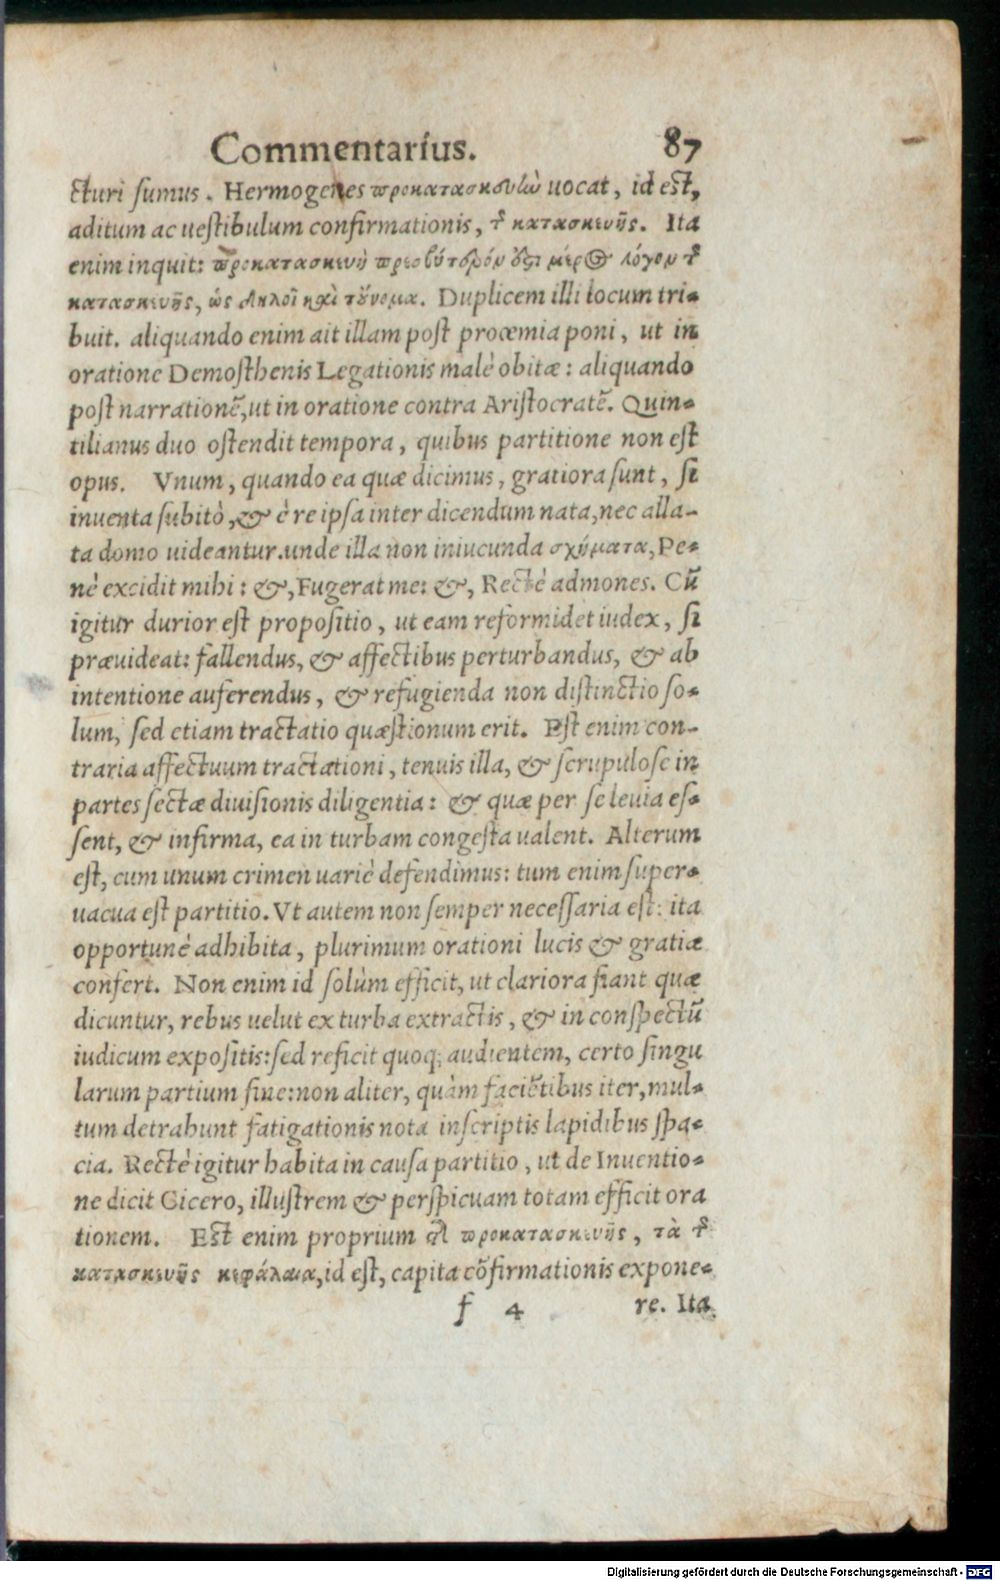 Commentarius. 87
cturi sumus. Hermogenes προκατασκευὴν uocat, id est,
aditum ac uestibulum confirmationis, τῆς κατασκευῆς. Ita
enim inquit: προκατασκευὴ πρεσβύτερόν ἐστι μέρος λόγου τῆς
κατασκευῆς, ὡς δηλοῖ καὶ τοὔνομα. Duplicem illi locum tri-
buit. aliquando enim ait illam post proœmia poni, ut in
oratione Demosthenis Legationis malè obitæ: aliquando
post narrationẽ, ut in oratione contra Aristocratẽ. Quin-
tilianus duo ostendit tempora, quibus partitione non est
opus. Vnum, quando ea quæ dicimus, gratiora sunt, si
inuenta subitò, & è re ipsa inter dicendum nata, nec alla-
ta domo uideantur. unde illa non iniucunda σχήματα, Pe-
nè excidit mihi: &, Fugerat me: &, Rectè admones. Cũ
igitur durior est propositio, ut eam reformidet iudex, si
præuideat: fallendus, & affectibus perturbandus, & ab
intentione auferendus, & refugienda non distinctio so-
lum, sed etiam tractatio quæstionum erit. Est enim con-
traria affectuum tractationi, tenuis illa, & scrupulose in
partes sectæ diuisionis diligentia: & quæ per se leuia es-
sent, & infirma, ea in turbam congesta ualent. Alterum
est, cum unum crimen uariè defendimus: tum enim super-
uacua est partitio. Vt autem non semper necessaria est: ita
opportunè adhibita, plurimum orationi lucis & gratiæ
confert. Non enim id solùm efficit, ut clariora fiant quæ
dicuntur, rebus uelut ex turba extractis, & in conspectũ
iudicum expositis: sed reficit quoq; audientem, certo singu
larum partium fine: non aliter, quàm faciẽtibus iter, mul-
tum detrahunt fatigationis nota inscriptis lapidibus spa-
cia. Rectè igitur habita in causa partitio, ut de Inuentio-
ne dicit Cicero, illustrem & perspicuam totam efficit ora
tionem. Est enim proprium τῆς προκατασκευῆς, τὰ τῆς
κατασκευῆς κεφάλαια, id est, capita cõfirmationis expone-
f 4 re. Ita
Digitalisierung gefördert durch die Deutsche Forschungsgemeinschaft - DFG